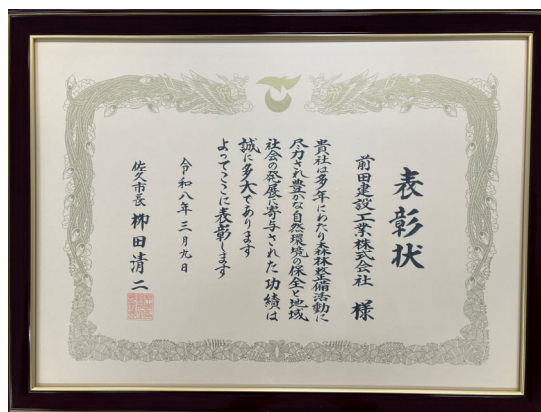 表彰状
前田建設工業株式会社 様
貴社は多年にわたり森林整備活動に
尽力され豊かな自然環境の保全と地域
社会の発展に寄与された功績は
誠に多大であります
よってここに表彰します
令和八年三月九日
佐久市長 栁田清二